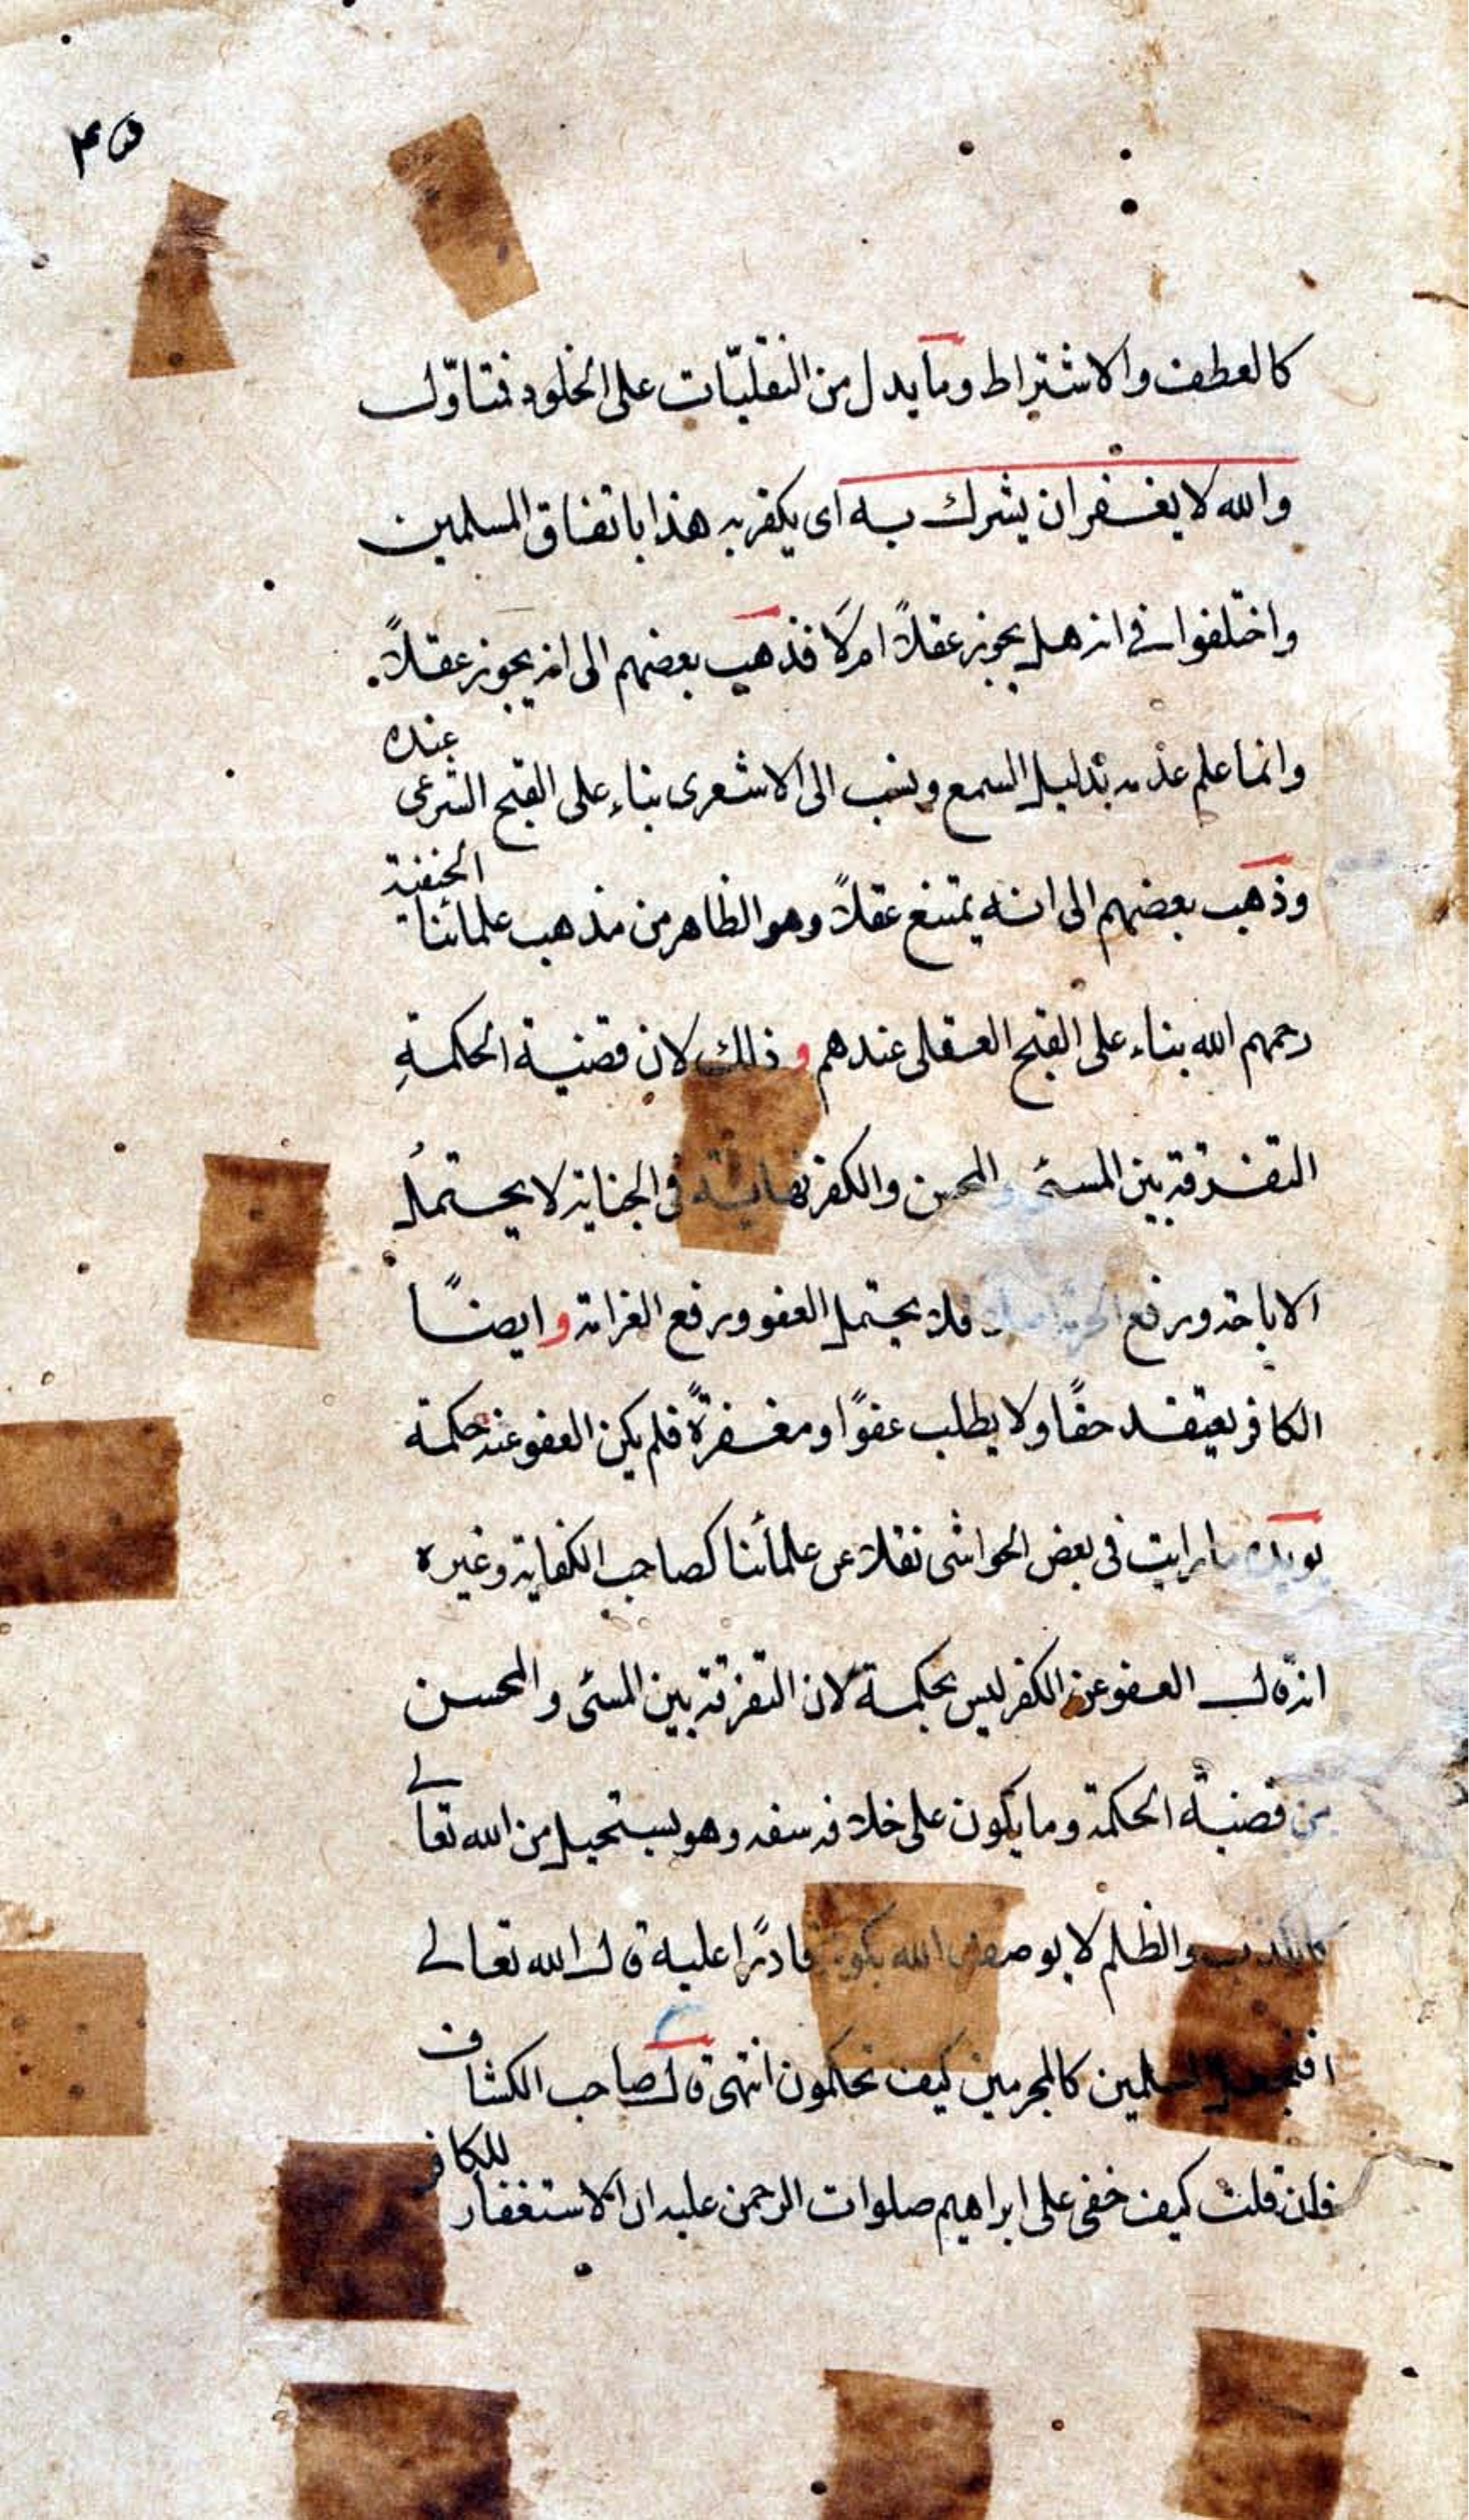 ٤٥
كالعطف والاشتراط وما يدل من النقليّات على الخلود فتاوّل
والله لا يغفر ان يشرك به اى يكفر به هذا باتفاق المسلمين
واختلفوا فى انه هل يجوز عقلاً ام لا فذهب بعضهم الى انه يجوز عقلاً.
وانما علم عدمه بدليل السمع ونسب الى الاشعرى بناء على القبح الشرعى عنده
وذهب بعضهم الى انه يمتنع عقلاً وهو الظاهر من مذهب علمائنا الحنفية
رحمهم الله بناء على القبح العقلى عندهم و ذلك لان قضية الحكمةِ
التفرقة بين المسئ والمحسن والكفر نهاية فى الجناية لا يحتملُ
الاباحة ورفع فلا يحتمل العفو ورفع الغرامة و ايضًا
الكافر يعتقد حقًا ولا يطلب عفوًا ومغفرةً فلم يكن العفو عنه حكمة
يؤيده ما رايت فى بعض الحواشى نقلا عن علمائنا كصاحب الكفاية وغيره
انه قال العفو عن الكفر ليس بحكمة لان التفرقة بين المسئى والمحسن
من قضية الحكمة وما يكون على خلافه سفه وهو يستحيل من الله تعالى
كالكذب والظلم لا يوصف الله بكونه قادرًا عليه قال الله تعالى
افنجعل المسلمين كالمجرمين كيف تحكمون انتهى قال صاحب الكشاف
فان قلت كيف خفى على ابراهيم صلوات الرحمن عليه ان الاستغفار للكافر